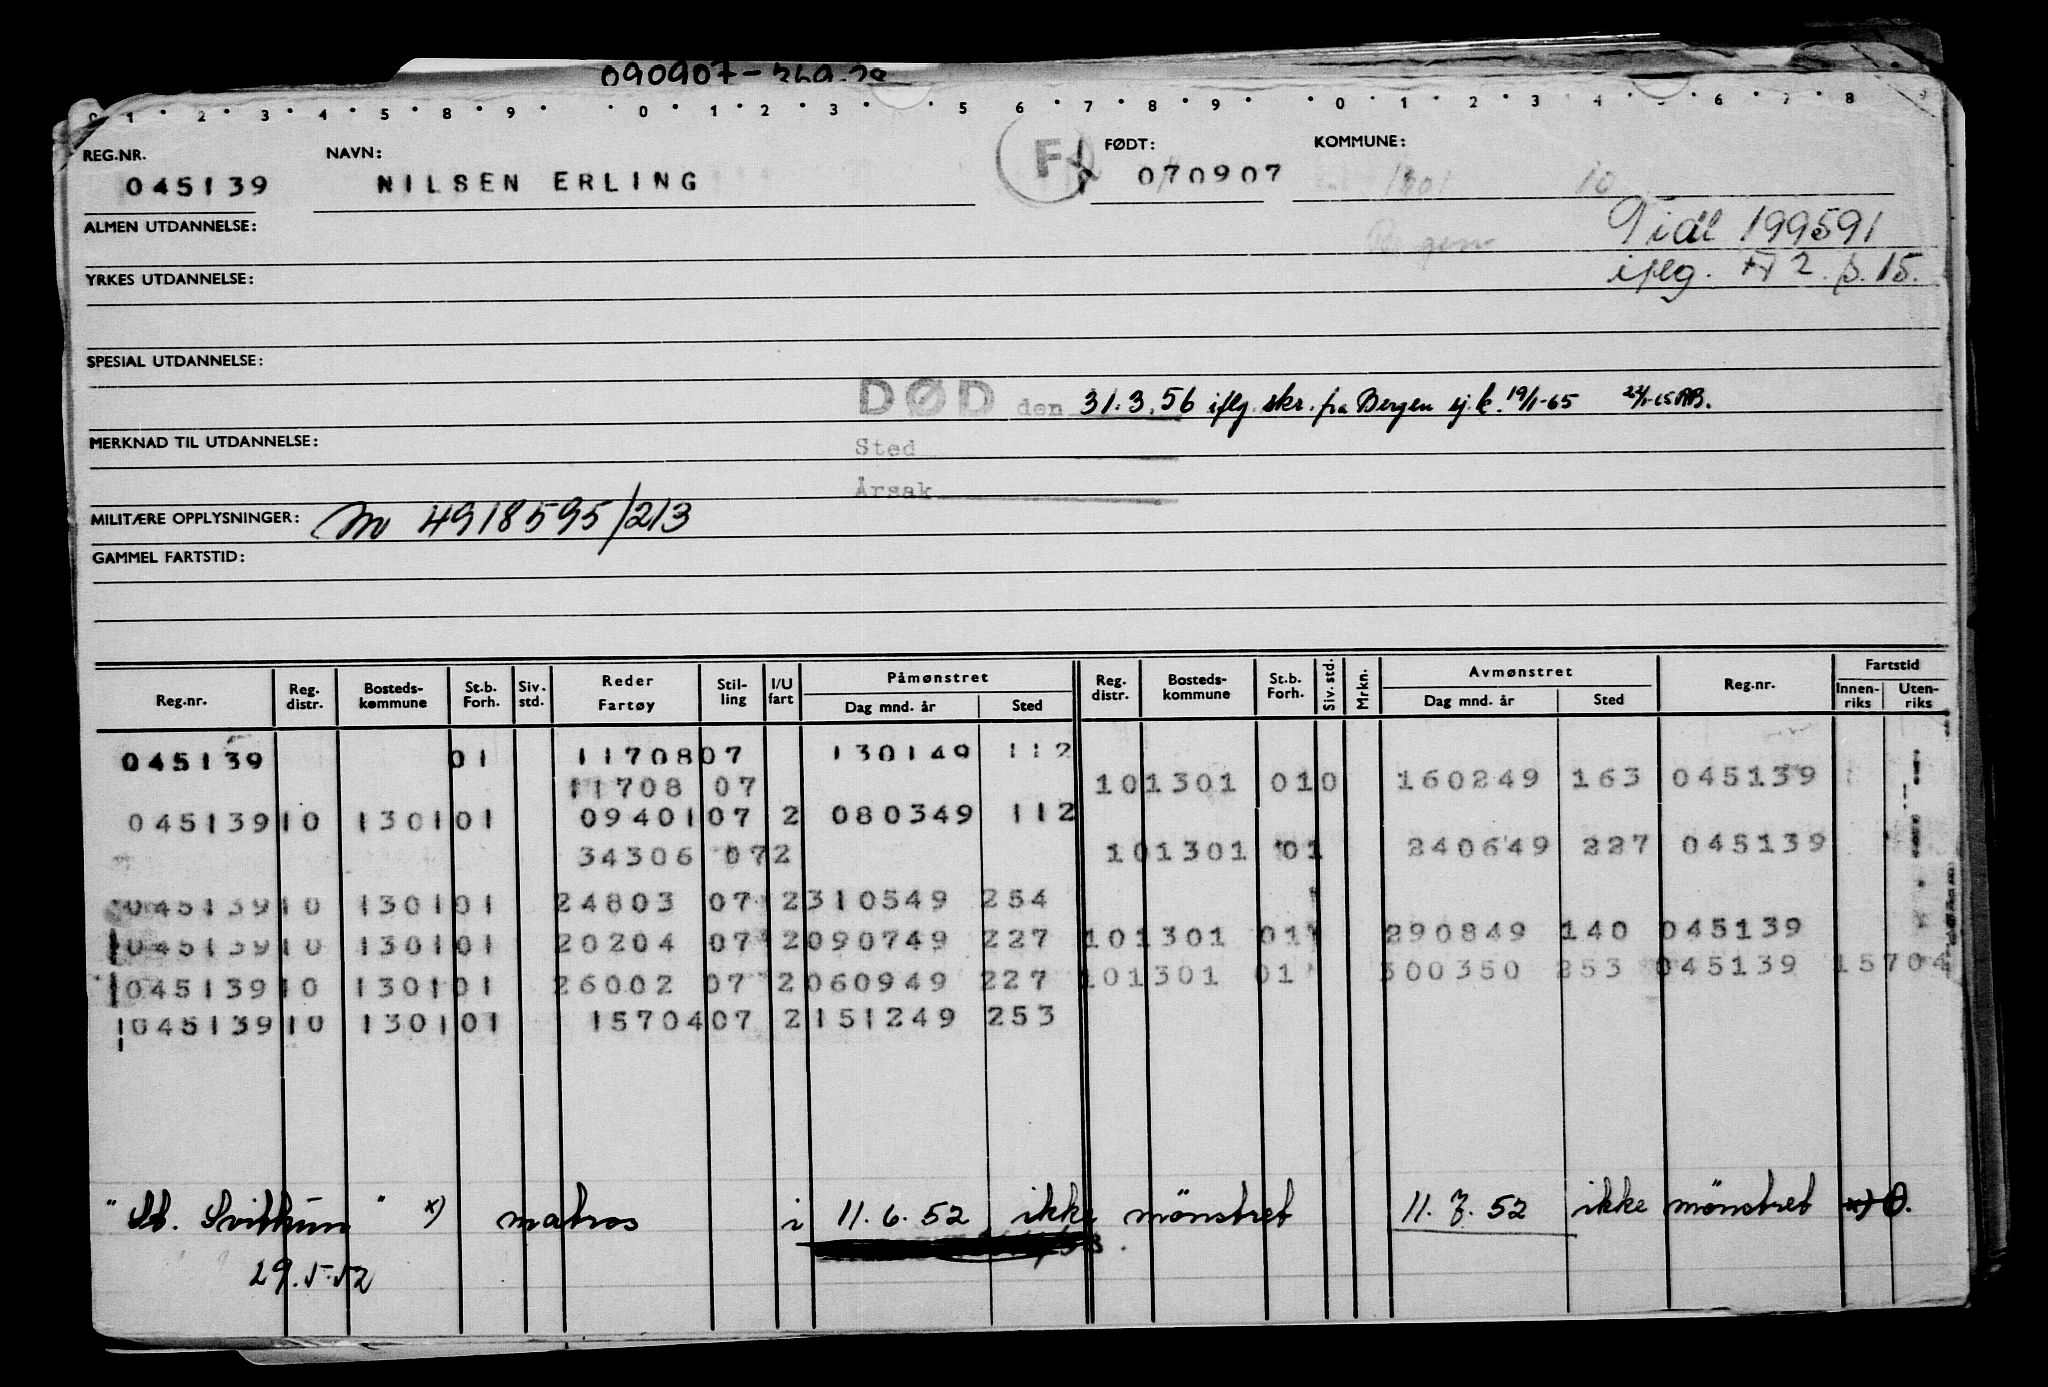 090907-
0 1 2 3 4 5 8 9 0 1 2 3 5 6 7 8 9 0 1 2 3 4 5 6 7 8
REG.NR. NAVN: F FØDT: KOMMUNE:
045139 NILSEN ERLING 070907 1301 10
ALMEN UTDANNELSE: Tidl 199591
YRKES UTDANNELSE: iflg. p. 15.
SPESIAL UTDANNELSE:
DØD den 31.3.56 iflg. skr. fra Bergen sj.k. 19/1-65
MERKNAD TIL UTDANNELSE: Sted
Årsak
MILITÆRE OPPLYSNINGER: M 4918595/213
GAMMEL FARTSTID:
Reg.nr. Reg. distr. Bosteds- kommune St.b. Forh. Siv. std. Reder Fartøy Stil- ling I/U fart Påmønstret Dag mnd. år Sted Reg. distr. Bosteds- kommune St.b. Forh. Siv. std. Mrkn. Avmønstret Dag mnd. år Sted Reg.nr. Fartstid Innen- riks Uten- riks
045139 01 11708 07 130149 112
11708 07 10 1301 01 0 160249 163 045139
045139 10 1301 01 09401 07 2 080349 112
34306 07 2 10 1301 01 240649 227 045139
045139 10 1301 01 24803 07 2 310549 254
045139 10 1301 01 20204 07 2 090749 227 10 1301 01 290849 140 045139
045139 10 1301 01 26002 07 2 060949 227 10 1301 01 300350 253 045139 15704
045139 10 1301 01 15704 07 2 151249 253
" St. Svithun " x) matros i 11.6.52 ikke mønstret 11.7.52 ikke mønstret
29.5.52